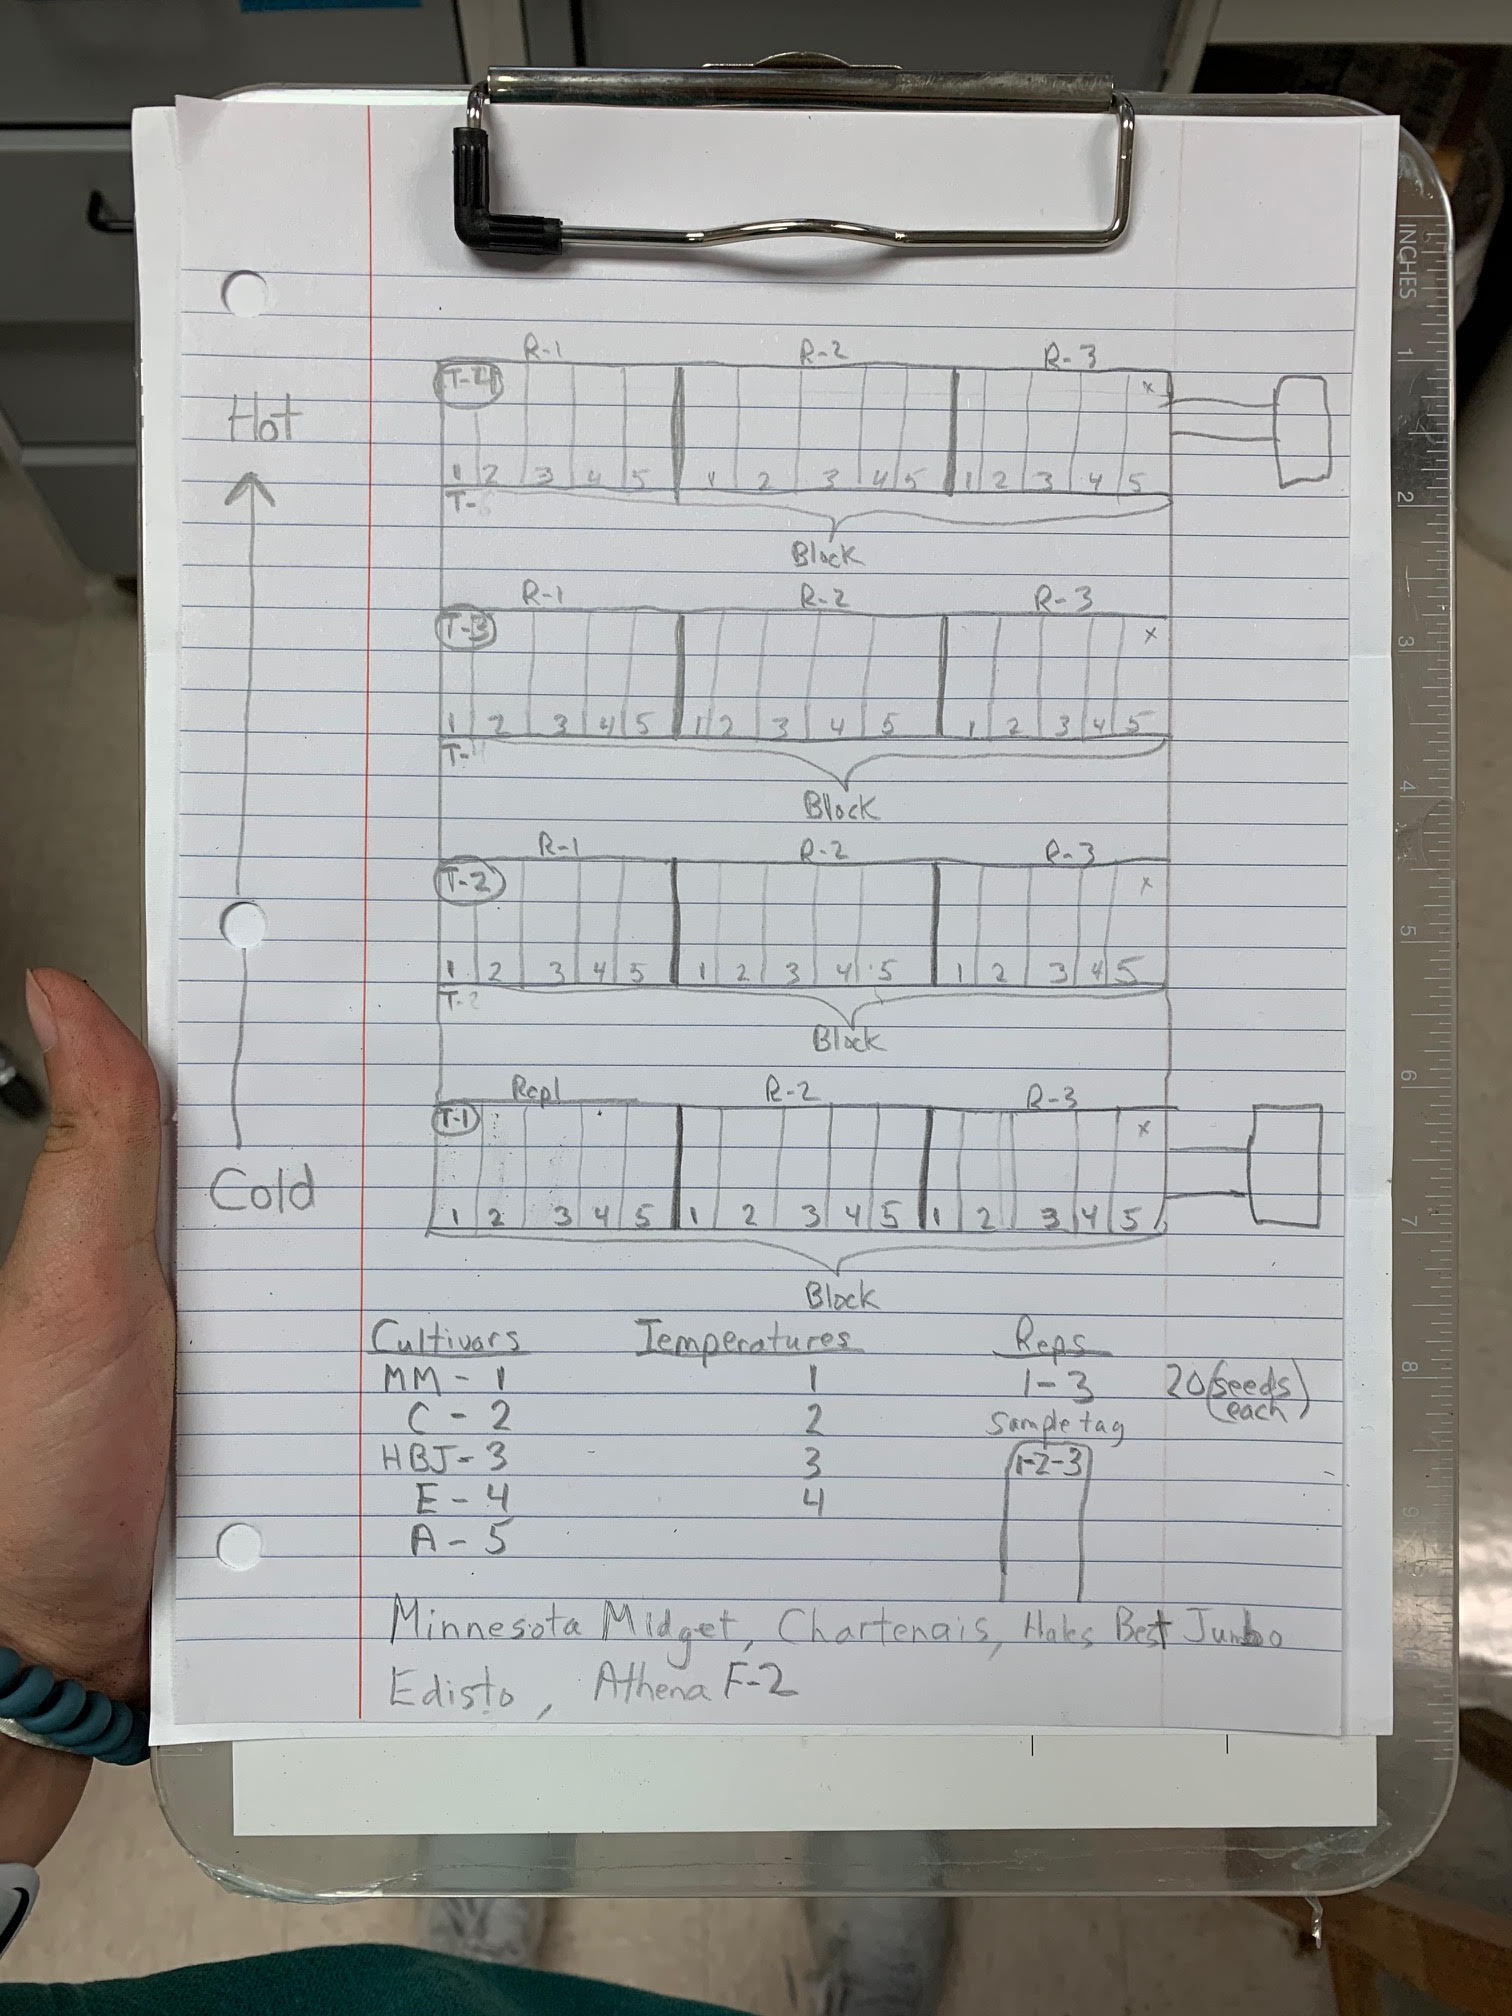 INCHES
1
2
3
4
5
6
7
8
9
R-1 R-2 R-3
T-4 x
Hot
1 2 3 4 5 1 2 3 4 5 1 2 3 4 5
T-
Block
R-1 R-2 R-3
T-3 x
1 2 3 4 5 1 2 3 4 5 1 2 3 4 5
T-
Block
R-1 R-2 R-3
T-2 x
1 2 3 4 5 1 2 3 4 5 1 2 3 4 5
T-2
Block
Rep1 R-2 R-3
T-1 x
Cold
1 2 3 4 5 1 2 3 4 5 1 2 3 4 5
Block
Cultivars Temperatures Reps
MM - 1 1 1-3 20 (seeds each)
C - 2 2 Sample tag
HBJ - 3 3 1-2-3
E - 4 4
A - 5
Minnesota Midget, Chartenais, Hales Best Jumbo
Edisto, Athena F-2